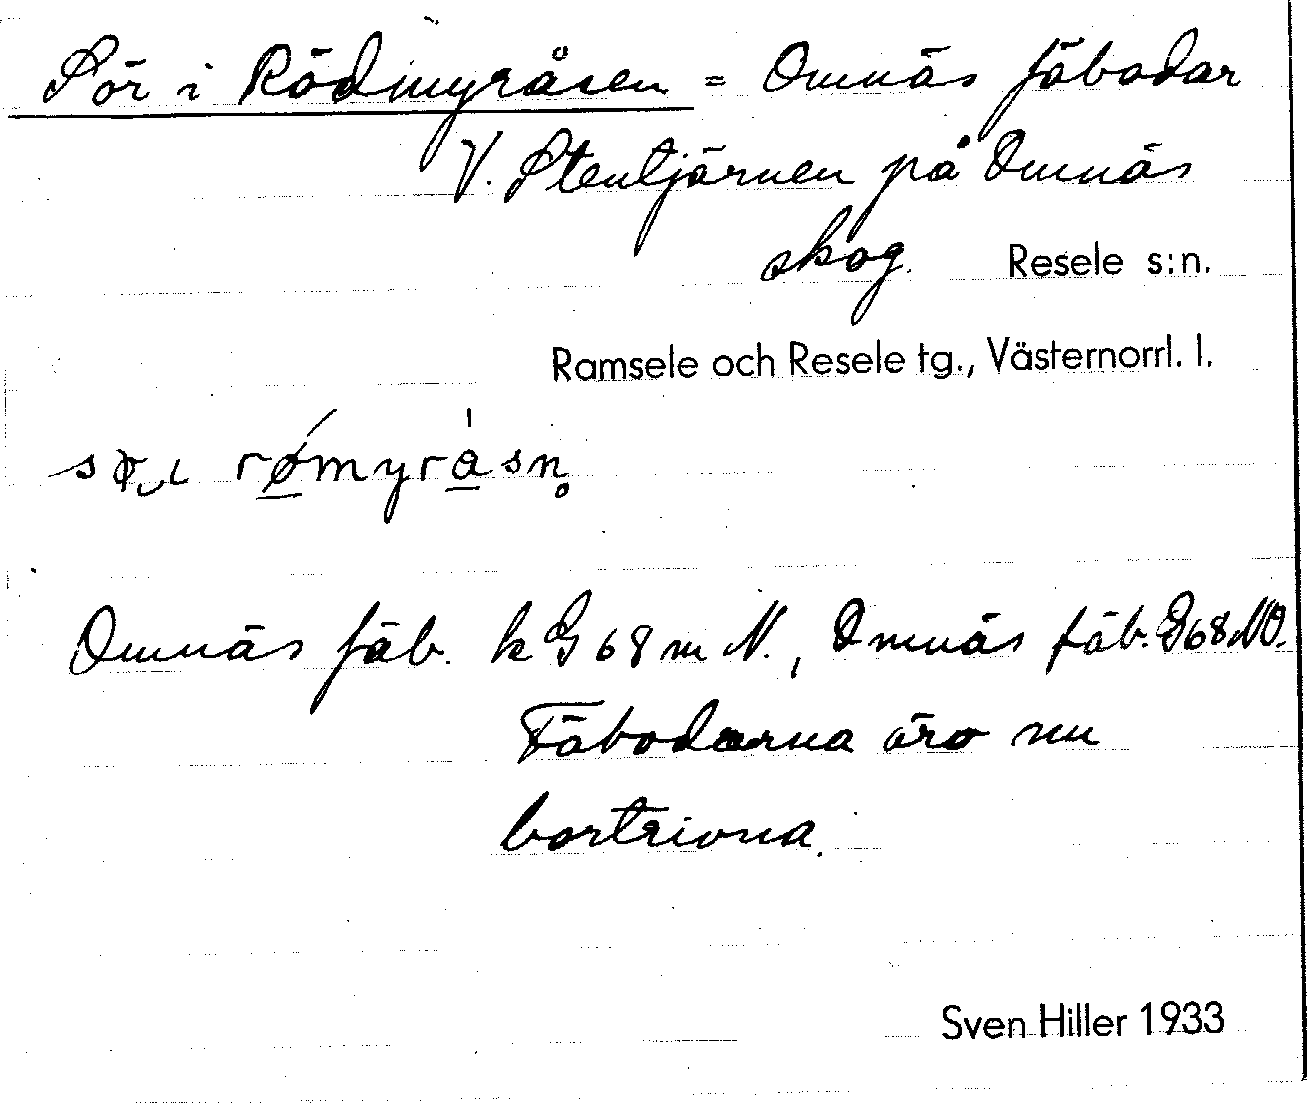 Sör i Rödmyråsen = Omnäs fäbodar
V. Stentjärnen på Omnäs
skog. Resele s:n.
Ramsele och Resele tg., Västernorrl. l.
rømyråsn̥
Omnäs fäb. k G 68 m N., Omnäs fäb. G 68 NO.
Fäbodarna äro nu
bortrivna.
Sven Hiller 1933